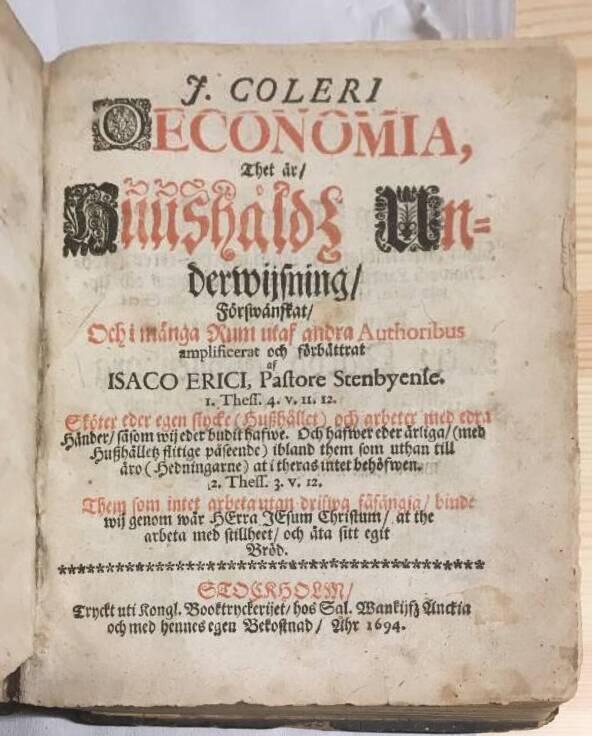 J. COLERI
OECONOMIA,
Thet är/
Huushåldz Un=
derwijsning/
Förswänskat/
Och i många Rum utaf andra Authoribus
amplificerat och förbättrat
af
ISACO ERICI, Pastore Stenbyense.
1. Thess. 4. v. 11. 12.
Sköter eder egen stycke (Hußhållet) och arbeter med edra
Händer/ såsom wij eder budit hafwe. Och hafwer eder ärliga/ (med
Hußhålletz flitige påseende) ibland them som uthan till
äro (Hedningarne) at i theras intet behöfwen.
2. Thess. 3. v. 12.
Them som intet arbeta utan drifwa fåfängia/ binde
wij genom wår HErra JEsum Christum/ at the
arbeta med stillheet/ och äta sitt egit
Bröd.
STOCKHOLM/
Tryckt uti Kongl. Booktryckerijet/ hos Sal. Wankijfz Änckia
och med hennes egen Bekostnad/ Åhr 1694.